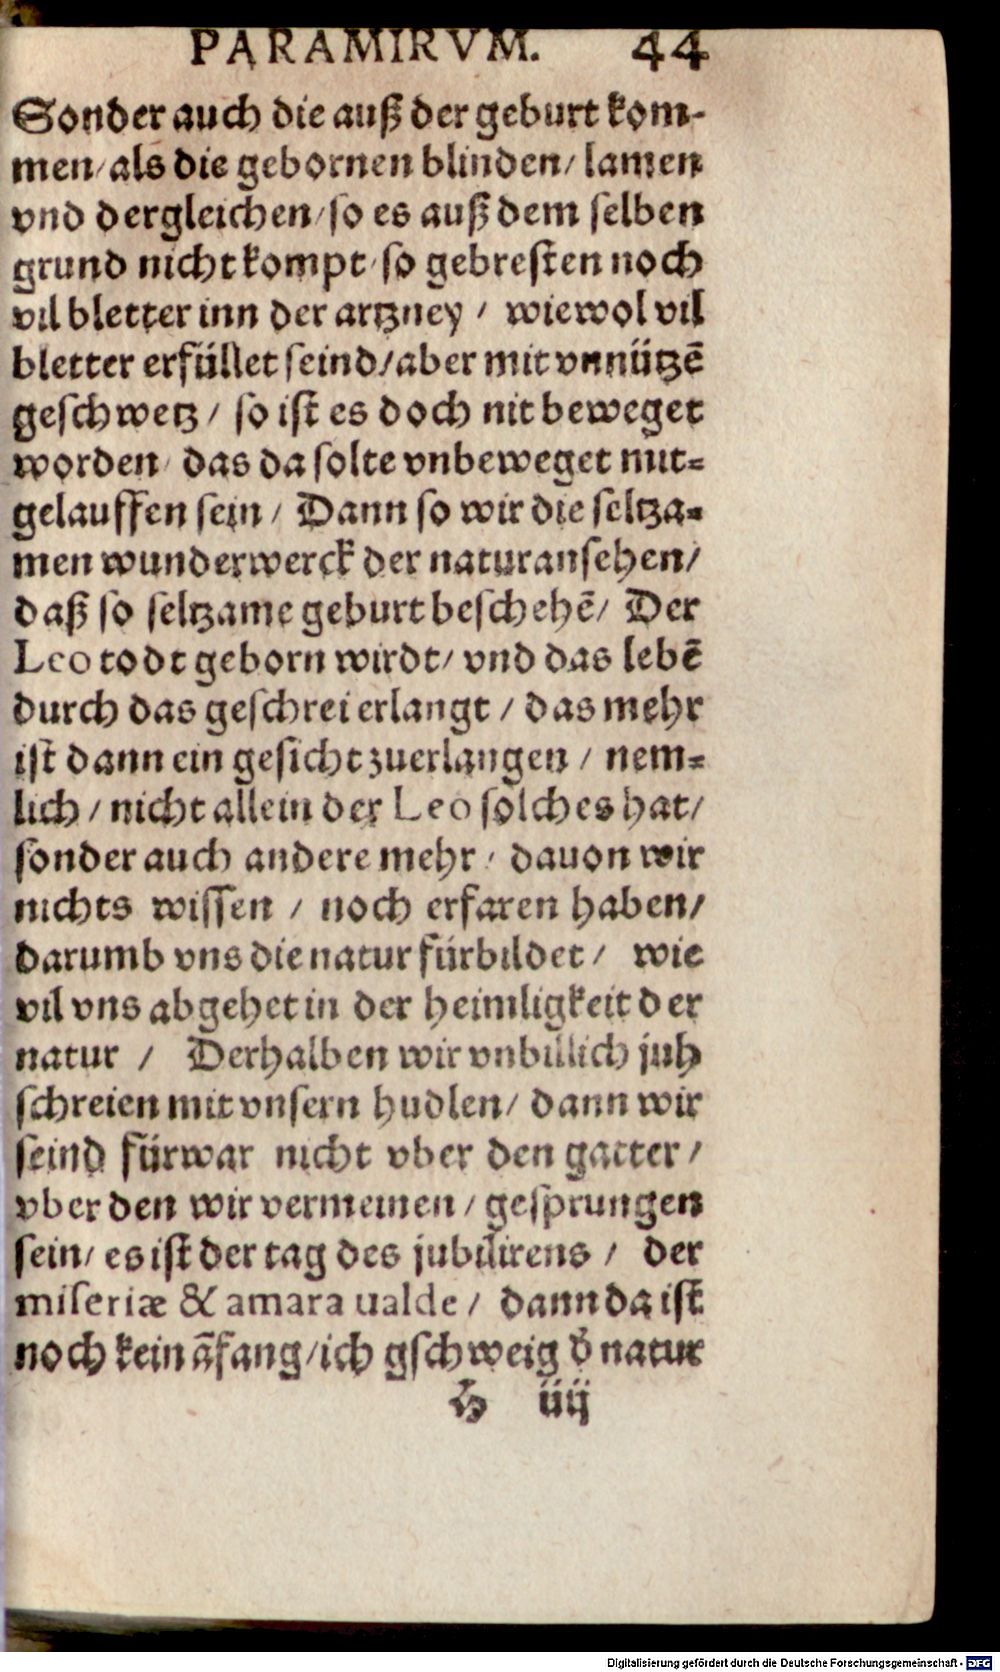 PARAMIRVM. 44
Sonder auch die auß der geburt kom-
men/als die gebornen blinden/ lamen
vnd dergleichen/so es auß dem selben
grund nicht kompt/so gebresten noch
vil bletter inn der artzney / wiewol vil
bletter erfüllet seind/aber mit vnnützē
geschwetz / so ist es doch nit beweget
worden/ das da solte vnbeweget mit-
gelauffen sein / Dann so wir die seltza-
men wunderwerck der natur ansehen/
daß so seltzame geburt beschehē/ Der
Leo todt geborn wirdt/ vnd das lebē
durch das geschrei erlangt / das mehr
ist dann ein gesicht zuerlangen / nem-
lich / nicht allein der Leo solches hat/
sonder auch andere mehr / dauon wir
nichts wissen / noch erfaren haben/
darumb vns die natur fürbildet / wie
vil vns abgehet in der heimligkeit der
natur / Derhalben wir vnbillich juh
schreien mit vnsern hudlen/ dann wir
seind fürwar nicht vber den gatter /
vber den wir vermeinen / gesprungen
sein/ es ist der tag des jubilirens / der
miseriæ & amara ualde / dann da ist
noch kein āfang/ich gschweig d̄ natur
H iiij
Digitalisierung gefördert durch die Deutsche Forschungsgemeinschaft - DFG